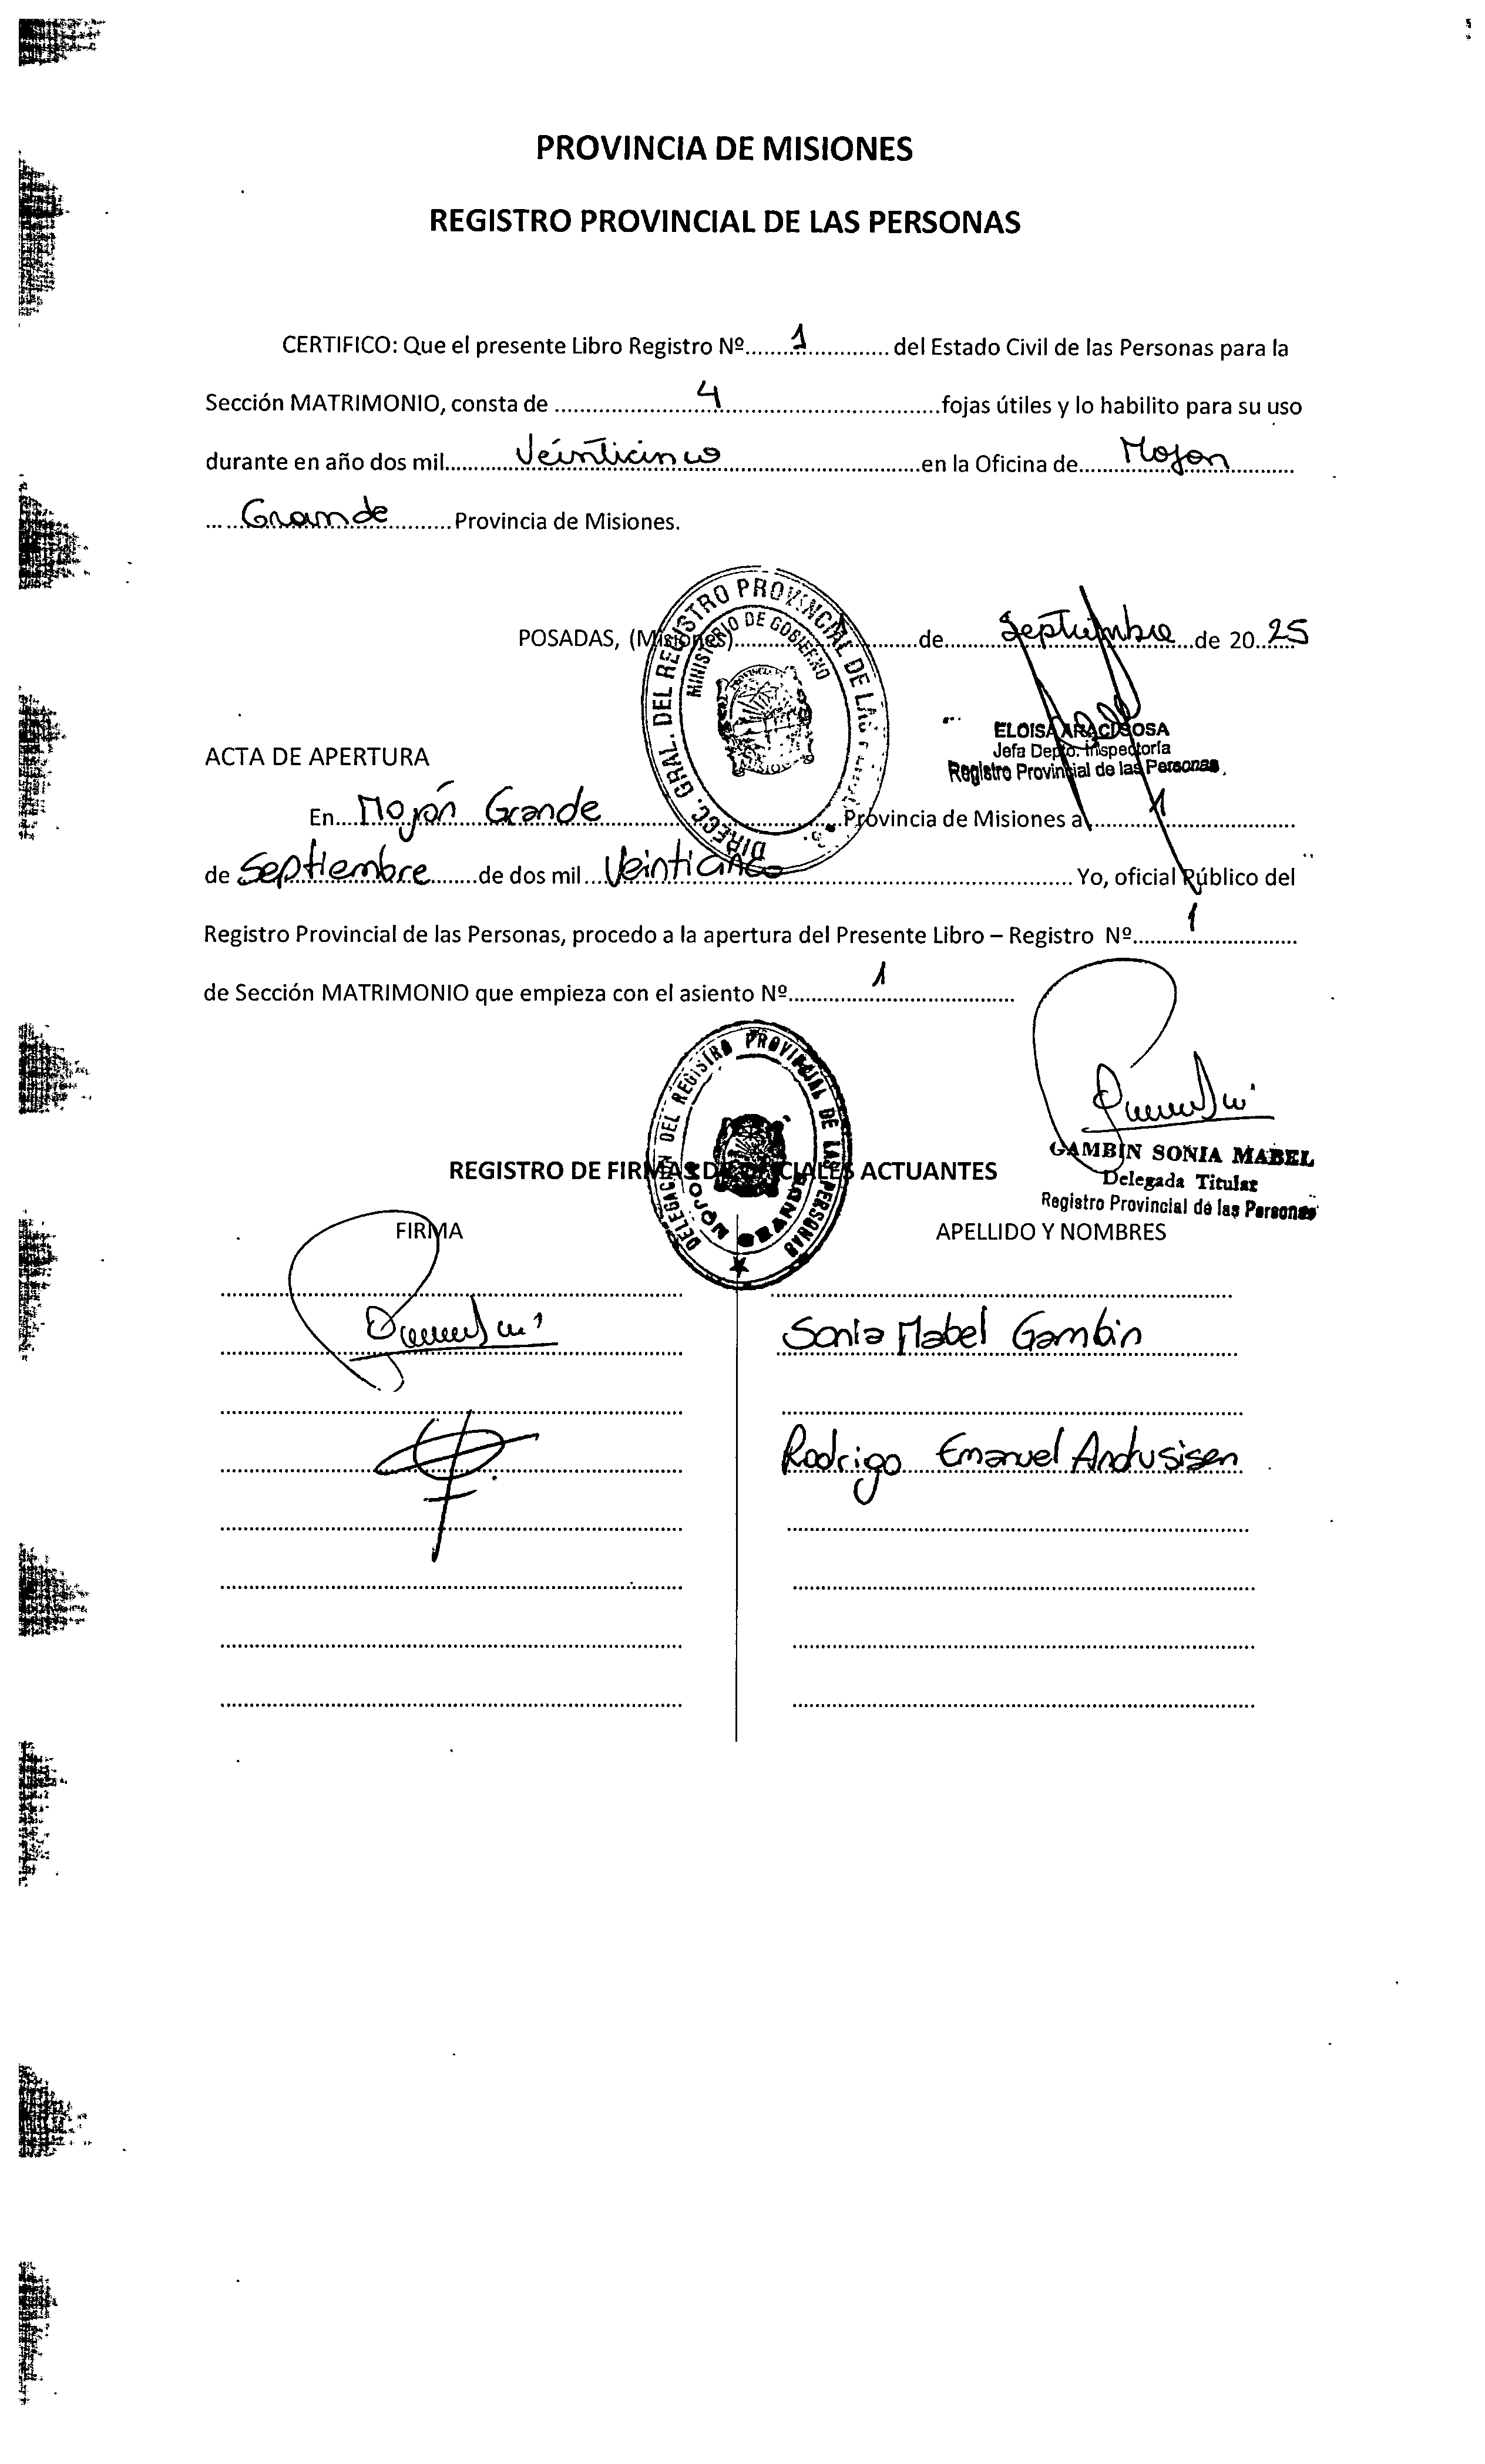 PROVINCIA DE MISIONES
REGISTRO PROVINCIAL DE LAS PERSONAS
CERTIFICO: Que el presente Libro Registro Nº 1 del Estado Civil de las Personas para la
Sección MATRIMONIO, consta de 4 fojas útiles y lo habilito para su uso
durante en año dos mil Veinticinco en la Oficina de Mojon
Grande Provincia de Misiones.
DIRECC. GRAL. DEL REGISTRO PROVINCIAL DE LAS
MINISTERIO DE GOBIERNO
POSADAS, (Misiones) de Septiembre de 2025
ELOISA ARACI SOSA
Jefa Depto. Inspectoría
Registro Provincial de las Personas
ACTA DE APERTURA
En Mojón Grande Provincia de Misiones a 1
de Septiembre de dos mil Veinticinco Yo, oficial Público del
Registro Provincial de las Personas, procedo a la apertura del Presente Libro – Registro Nº 1
de Sección MATRIMONIO que empieza con el asiento Nº 1
DELEGACIÓN DEL REGISTRO PROVINCIAL DE LAS PERSONAS
MOJON GRANDE
GAMBIN SONIA MABEL
Delegada Titular
Registro Provincial de las Personas
REGISTRO DE FIRMAS DE OFICIALES ACTUANTES
FIRMA APELLIDO Y NOMBRES
Sonia Mabel Gambin
Rodrigo Emanuel Andrusisen